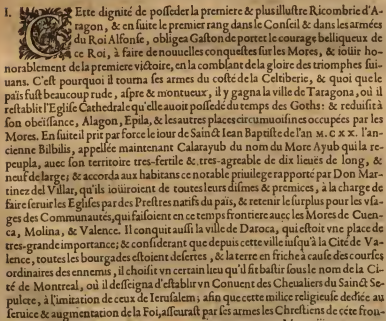 I. CEtte dignité de posseder la premiere & plus illustre Ricombrie d'A-
ragon, & en suite le premier rang dans le Conseil & dans les armées
du Roi Alfonse, obligea Gaston de porter le courage belliqueux de
ce Roi, à faire de nouvelles conquestes sur les Mores, & ioüir ho-
norablement de la premiere victoire, en la comblant de la gloire des triomphes sui-
uans. C'est pourquoi il tourna ses armes du costé de la Celtiberie, & quoi que le
païs fust beaucoup rude, aspre & montueux, il y gagna la ville de Taragona, où il
restablit l'Eglise Cathedrale qu'elle auoit possedé du temps des Goths: & reduisit à
son obeïssance, Alagon, Epila, & les autres places circumuoisines occupées par les
Mores. En suite il prit par force le iour de Sainct Iean Baptiste de l'an M. C X X. l'an-
cienne Bilbilis, appellée maintenant Calarayub du nom du More Ayub qui la re-
peupla, auec son territoire tres-fertile & tres-agreable de dix lieuës de long, &
neuf de large; & accorda aux habitans ce notable priuilege rapporté par Don Mar-
tinez del Villar, qu'ils ioüiroient de toutes leurs dismes & premices, à la charge de
faire seruir les Eglises par des Prestres natifs du païs, & retenir le surplus pour les vsa-
ges des Communautés, qui faisoient en ce temps frontiere auec les Mores de Cuen-
ca, Molina, & Valence. Il conquit aussi la ville de Daroca, qui estoit vne place de
tres-grande importance; & considerant que depuis cette ville iusqu'à la Cité de Va-
lence, toutes les bourgades estoient desertes, & la terre en friche à cause des courses
ordinaires des ennemis, il choisit vn certain lieu qu'il fit bastir sous le nom de la Ci-
té de Montreal, où il desseigna d'establir vn Conuent des Cheualiers du Sainct Se-
pulcre, à l'imitation de ceux de Ierusalem; afin que cette milice religieuse dediée au
seruice & augmentation de la Foi, asseurast par ses armes les Chrestiens de cete fron-